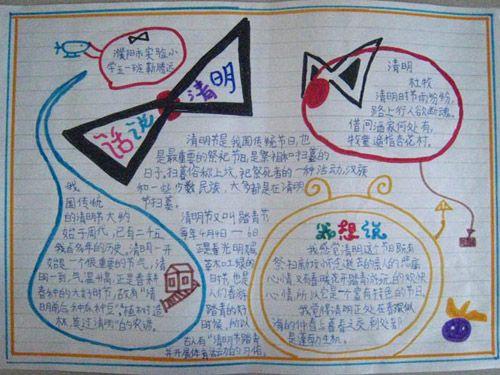 濮阳市实验小
学五一班 靳腾远
话说清明
清明
杜牧
清明时节雨纷纷,
路上行人欲断魂。
借问酒家何处有,
牧童遥指杏花村。
清明节是我国传统节日,也
是最重要的祭祀节日,是祭祖和扫墓的
日子。扫墓俗称上坟,祀祭死者的一种活动。汉族
和一些少数民族,大多都是在清明
节扫墓。
我
国传统
的清明节大约
始于周代,已有二千五
百多年的历史。清明一开
始是一个很重要的节气,清
明一到,气温升高,正是春耕
春种的大好时节,故有“清
明前后,种瓜种豆”“植树造
林,莫过清明”的农谚。
清明节又叫踏青节
每年4月4日—6日
正是春光明媚
草木吐绿的
时节,也是
人们春游
踏青的好
时候,所以
古人有“清明节踏青
并开展体育活动的习俗。
我想说
我感觉清明这个节日既有
祭扫新坟怀念逝去的亲人的
心情,又有春暖花开踏青游玩的欢快
心情,所以它是一个富有特色的节日。